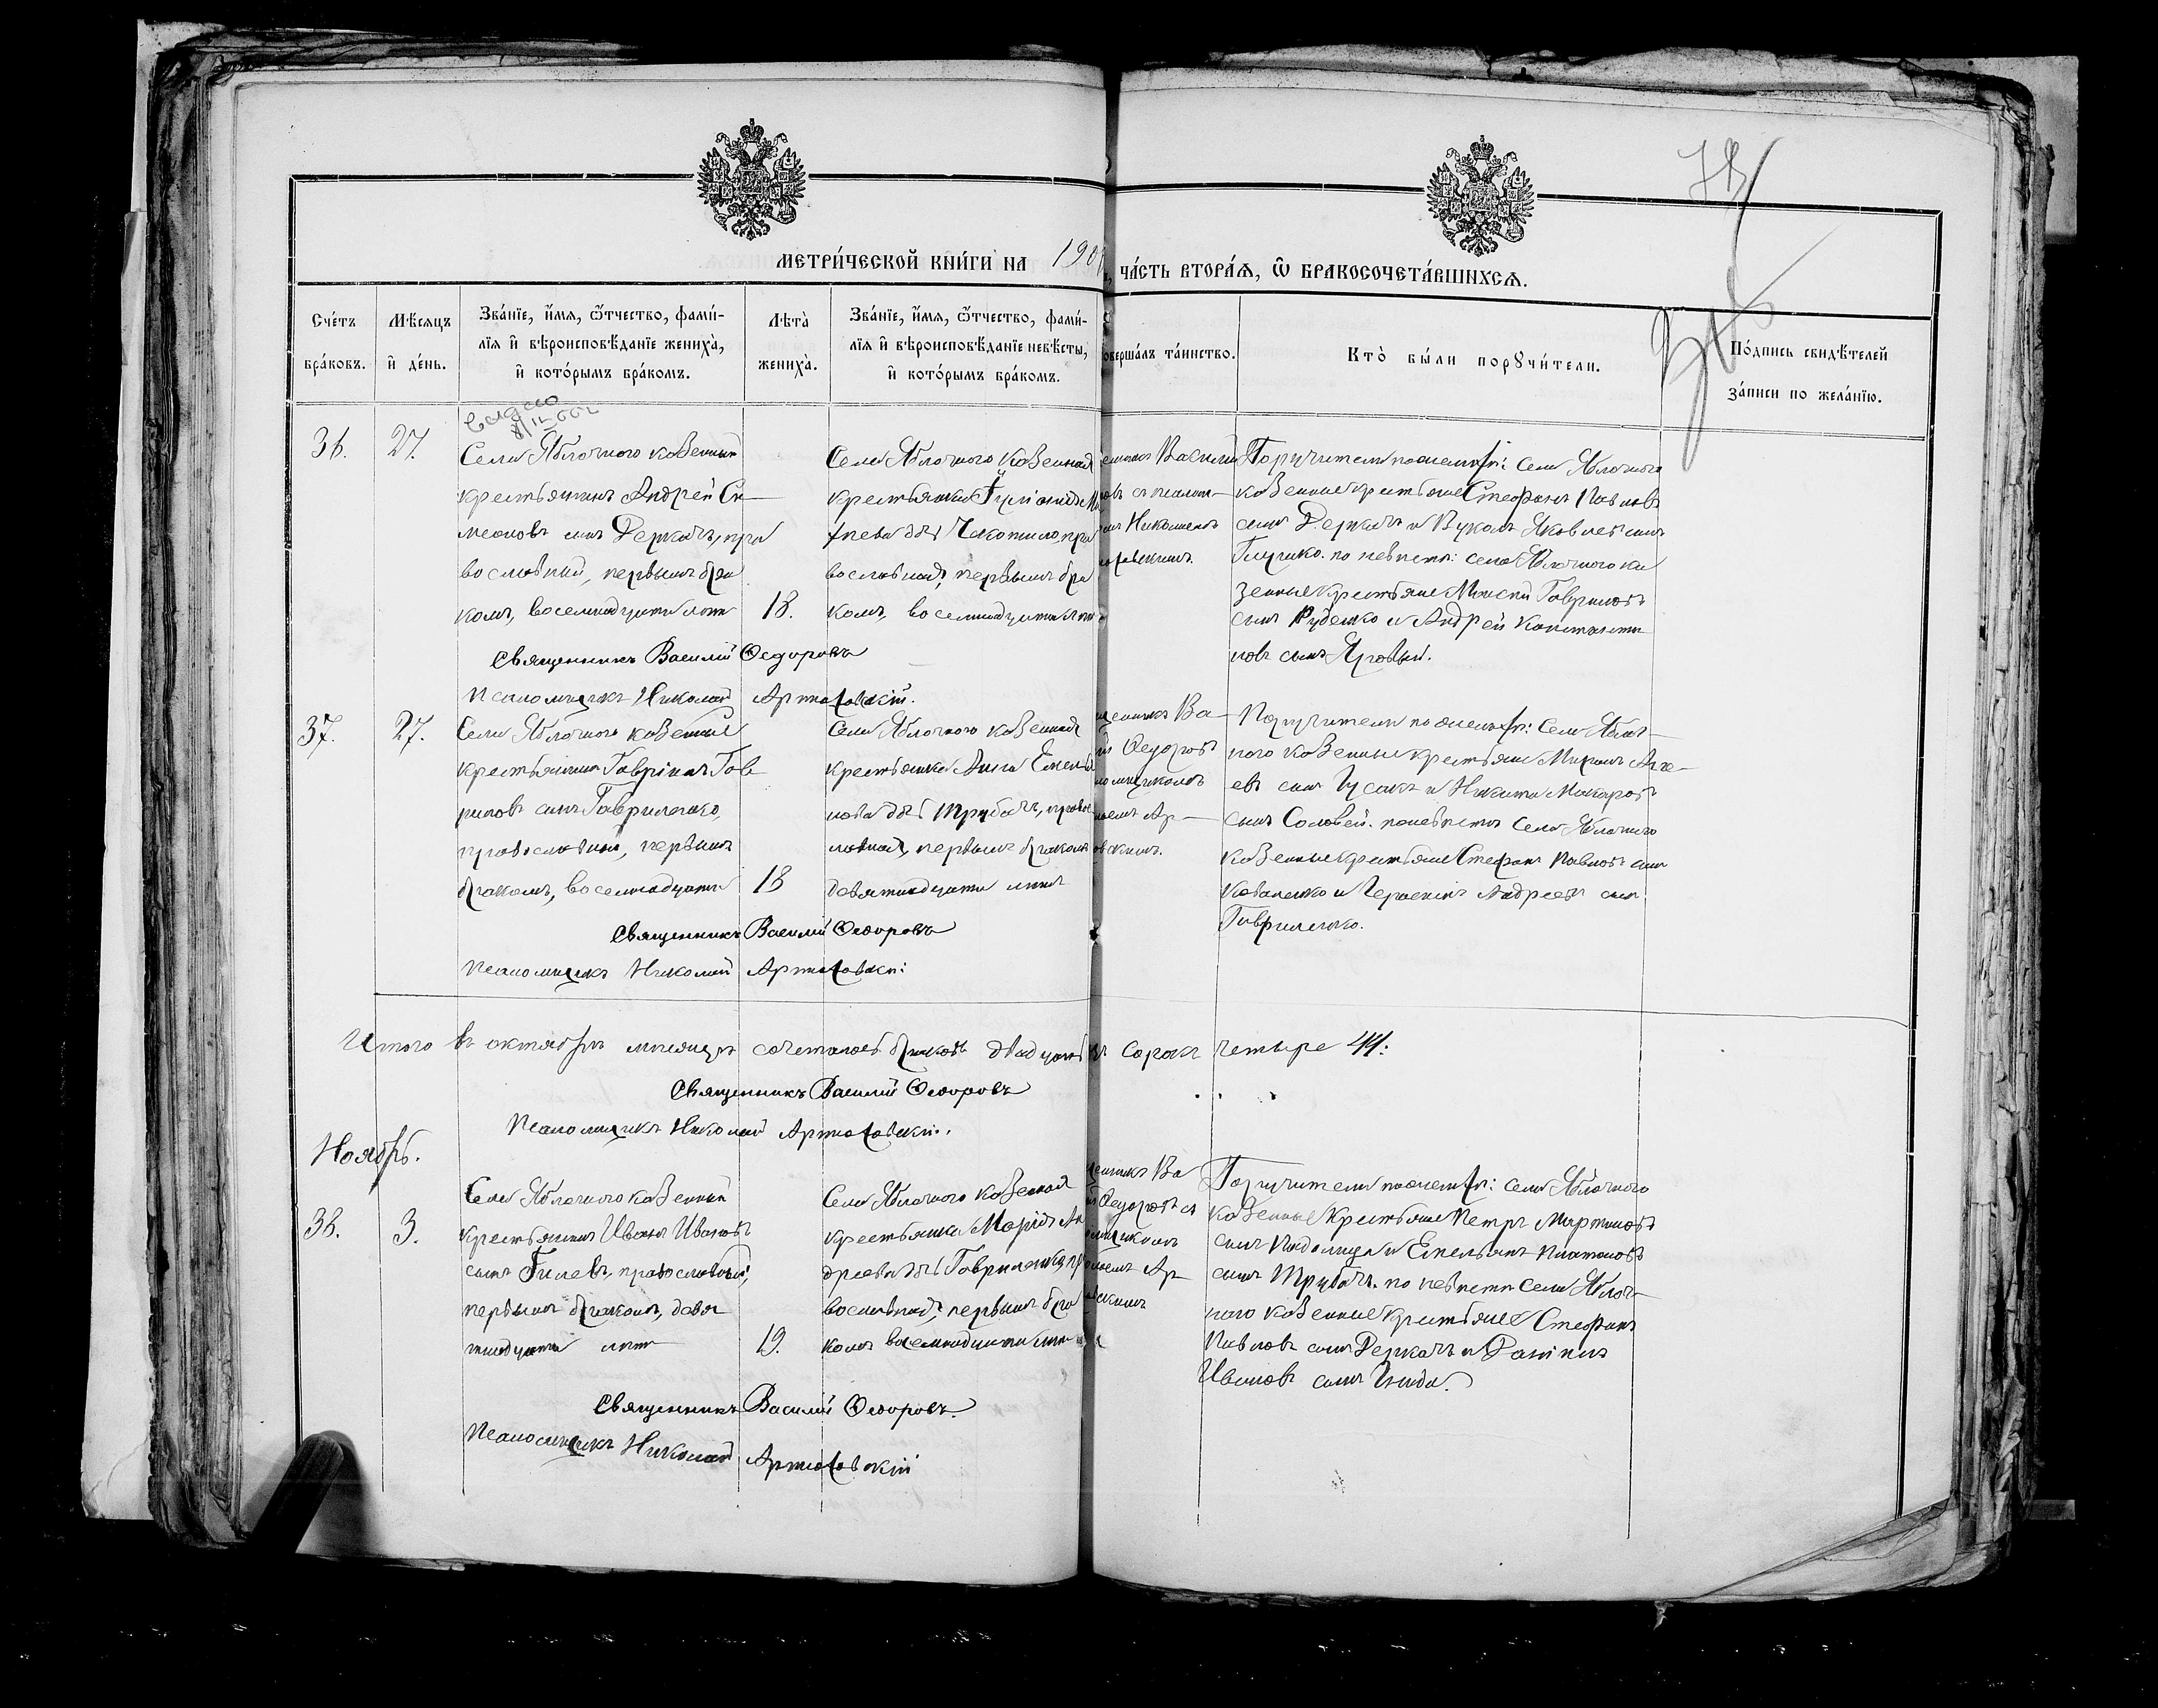 МЕТРИ́ЧЕСКОЙ КНИ́ГИ НА 190
, ЧА́СТЬ ВТОРА́Я, Ѡ БРАКОСОЧЕТА́ВШИХСѦ.
Сче́тъ
бра́ковъ.
Мѣ́сяцъ
и҆ де́нь.
Зва́нїе, и҆́мя, ѻ҆́тчество, фами́-
лїя и҆ вѣроисповѣ́данїе жениха̀,
и҆ кото́рымъ бра́комъ.
Лѣта̀
жениха̀.
Зва́нїе, и҆́мя, ѻ҆́тчество, фами́-
лїя и҆ вѣроисповѣ́данїе невѣ́сты,
и҆ кото́рымъ бра́комъ.
оверша́лъ та́инство.
Кто̀ бы́ли порꙋчи́тели.
По́дпись свидѣ́телей
за́писи по жела́нїю.
36.
27.
Села Яблочного казенный
крестьянинъ Андрей Си
меоновъ сынъ Деркачъ, пра
вославный, первымъ бра
комъ, восемнадцати лѣтъ
18.
Села Яблочного казенная
крестьянка
дчь Чекотило, пра
вославная, первымъ бра
комъ, восемнадцати лѣтъ
Василій
Поручители по женихѣ: села Яблочного
казенные крестьяне Стефанъ Павловъ
сынъ Деркачъ и Вуколъ Яковлевъ сынъ
по невѣстѣ: села Яблочного ка
зенные крестьяне Гавриловъ
сынъ Руденко и Андрей Константи
новъ сынъ Яровый.
Священникъ Василій Ѳедоровъ
Псаломщикъ Николай Артюховскій.
37.
27.
Села Яблочного казенный
крестьянинъ Гавріилъ Гав
риловъ сынъ Гавриленко,
православный, первымъ
бракомъ, восемнадцати
18
Села Яблочного казенная
крестьянка Анна Емелья
нова дчь Трубачъ, правос
лавная, первымъ бракомъ
девятнадцати лѣтъ
щенникъ Ва
Ѳедоровъ
ломщикомъ
лаемъ Ар
овскимъ.
Поручители по женихѣ: села Яблоч
ного казенные крестьяне Михаилъ Аге
евъ сынъ Гусакъ и Никита Макаровъ
сынъ Соловей. по невѣстѣ села Яблочного
казенные крестьяне Стефанъ Павловъ сынъ
Коваленко и Герасимъ Андреевъ сынъ
Гавриленко.
Священникъ Василій Ѳедоровъ
Псаломщикъ Николай Артюховскій
Итого въ октябрѣ мѣсяцѣ сочеталось браковъ двадцать
Сорокъ четыре 44:
Священникъ Василій Ѳедоровъ
Псаломщикъ Николай Артюховскій.
Ноябрь.
38.
3.
Села Яблочного казенный
крестьянинъ Иванъ Ивановъ
сынъ Гилевъ, православный,
первымъ бракомъ, девят
надцати лѣтъ
19.
Села Яблочного казенная
крестьянка Марія Ан
дреева дчь Гавриленко, пра
вославная, первымъ бра
комъ восемнадцати лѣтъ
щенникъ Ва
Ѳедоровъ съ
ломщикомъ
лаемъ Ар
овскимъ
Поручители по женихѣ: села Яблочного
казенные крестьяне Петръ Мартиновъ
сынъ и Емельянъ Платоновъ
сынъ Трубачъ. по невѣстѣ села Яблоч
ного казенные крестьяне Стефанъ
Павловъ сынъ Деркачъ и Даніилъ
Ивановъ сынъ Гнида.
Священникъ Василій Ѳедоровъ.
Псаломщикъ Николай Артюховскій